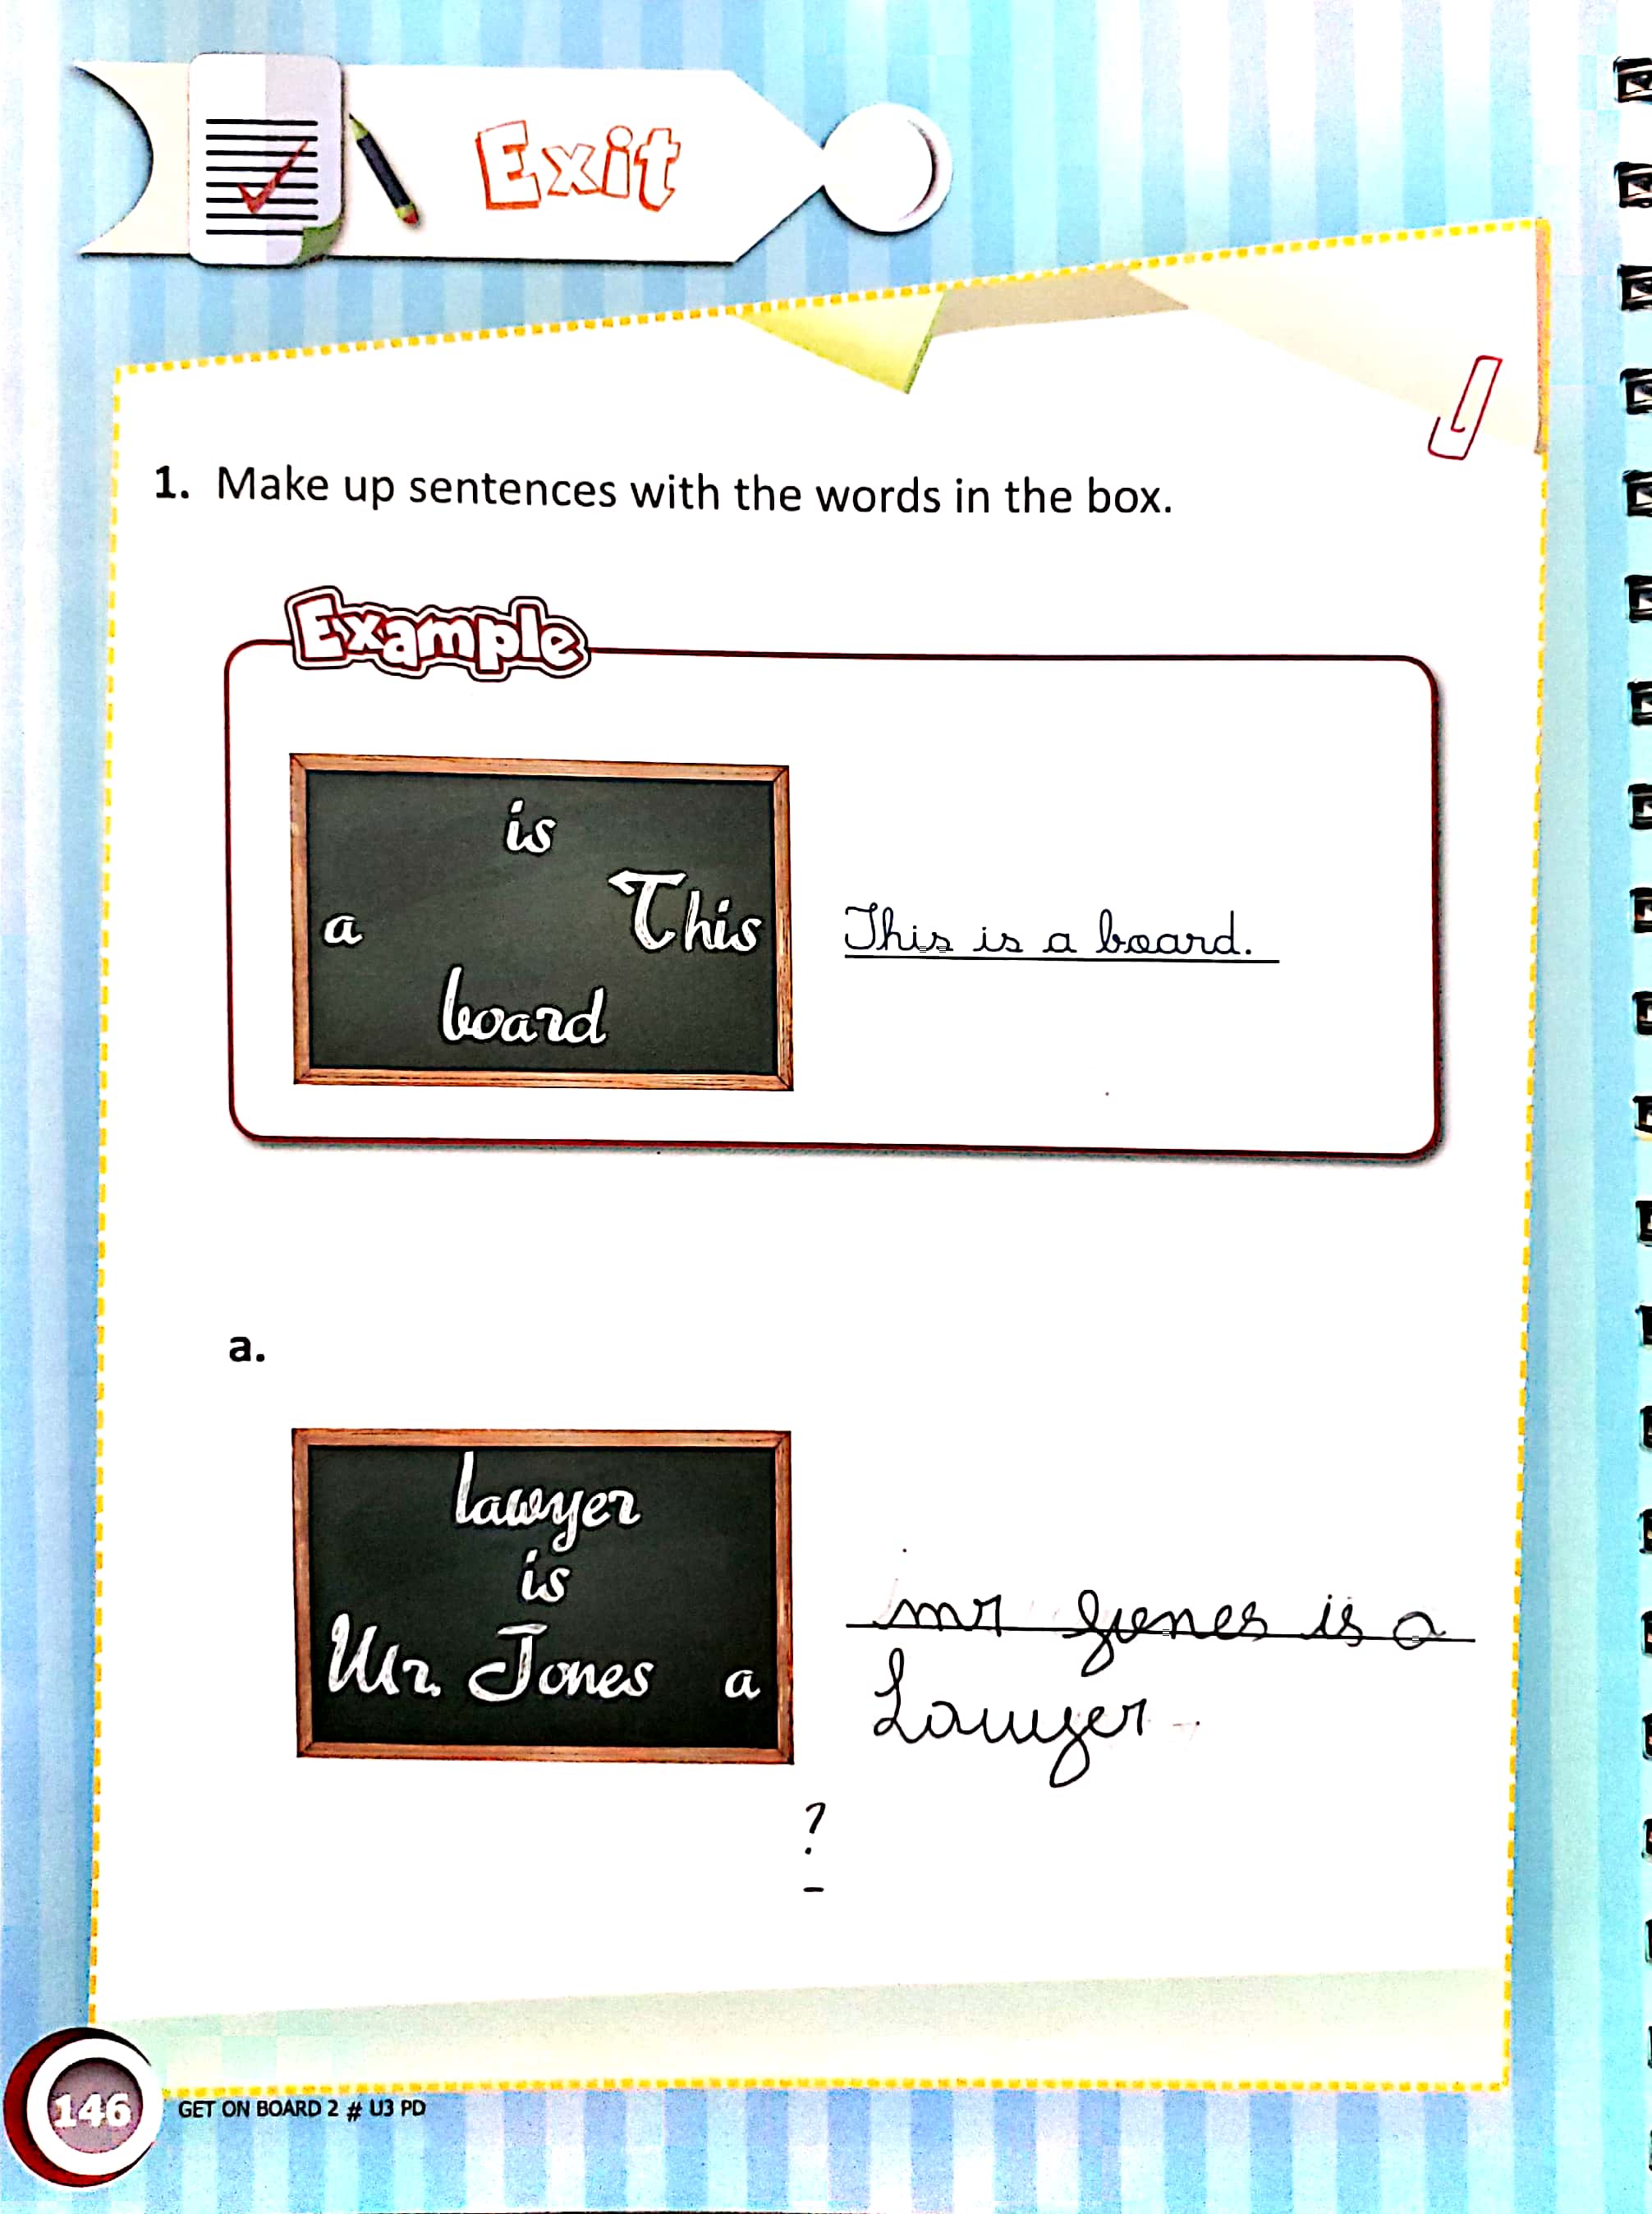 Exit
1. Make up sentences with the words in the box.
Example
is
a This
board
This is a board.
a.
lawyer
is
Mr. Jones a
mr Jones is a
Lawyer
?
146
GET ON BOARD 2 # U3 PD